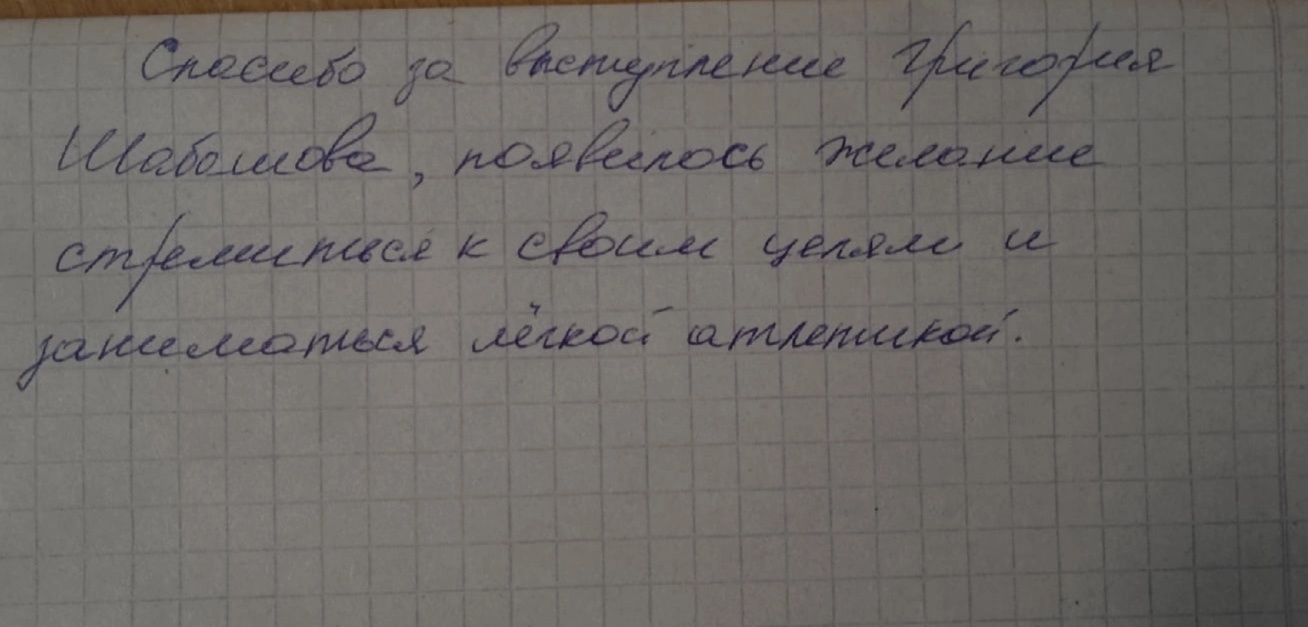 Спасибо за выступление Григория
Шабашова, появилось желание
стремиться к своим целям и
заниматься лёгкой атлетикой.